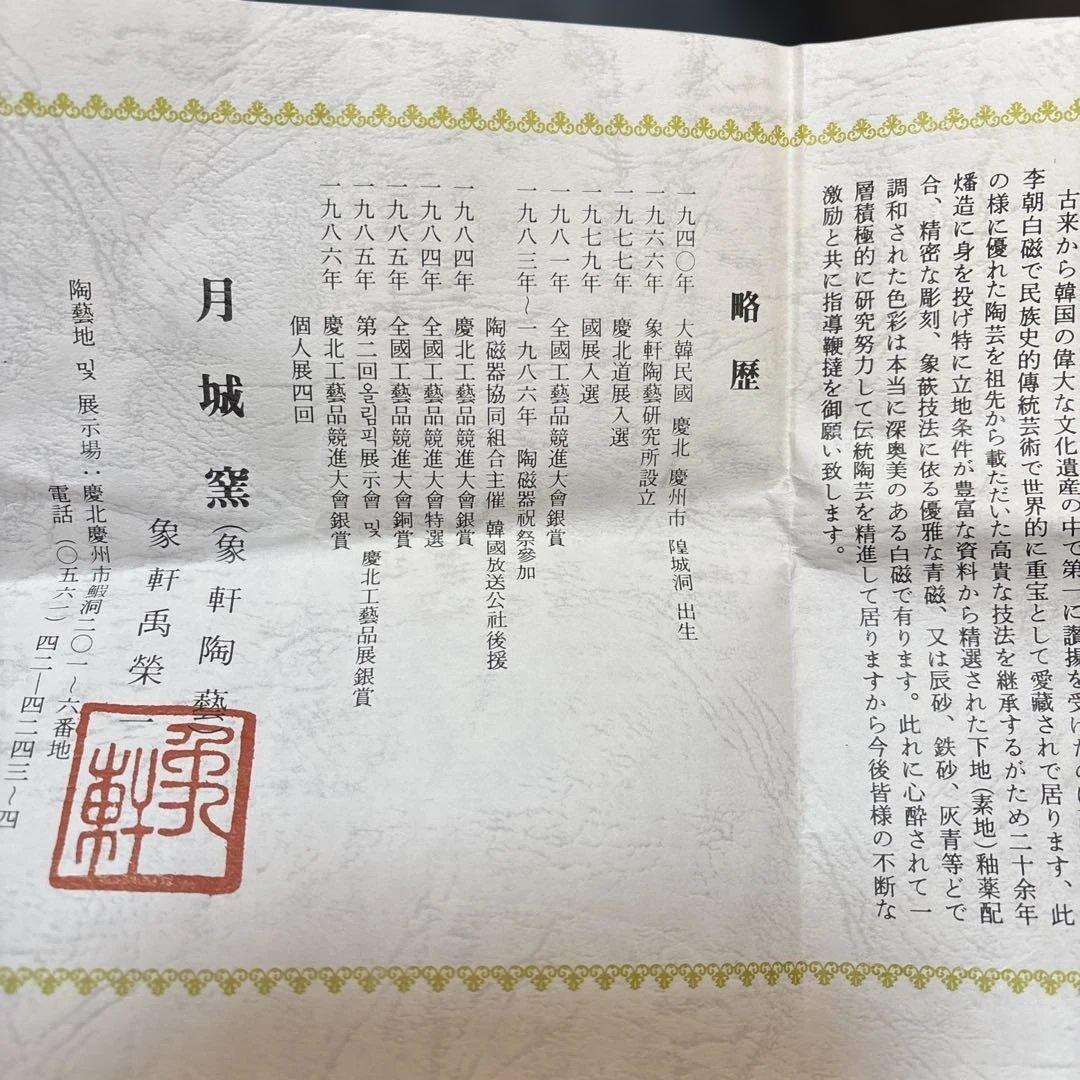 古来から韓国の偉大な文化遺産の中で第一に讃揚を受けたのは
李朝白磁で民族史的傳統芸術で世界的に重宝として愛藏されて居ります、此
の様に優れた陶芸を祖先から載ただいた高貴な技法を継承するがため二十余年
燔造に身を投げ特に立地条件が豊富な資料から精選された下地(素地)釉薬配
合、精密な彫刻、象嵌技法に依る優雅な青磁、又は辰砂、鉄砂、灰青等どで
調和された色彩は本当に深奥美のある白磁で有ります。此れに心酔されて一
層積極的に研究努力して伝統陶芸を精進して居りますから今後皆様の不断な
激励と共に指導鞭撻を御願い致します。
略歴
一九四〇年 大韓民國 慶北 慶州市 隍城洞 出生
一九六六年 象軒陶藝研究所設立
一九七七年 慶北道展入選
一九七九年 國展入選
一九八一年 全國工藝品競進大會銀賞
一九八三年~一九八六年 陶磁器祝祭參加
陶磁器協同組合主催 韓國放送公社後援
一九八四年 慶北工藝品競進大會銀賞
一九八四年 全國工藝品競進大會特選
一九八五年 全國工藝品競進大會銅賞
一九八五年 第二回올림픽展示會 및 慶北工藝品展銀賞
一九八六年 慶北工藝品競進大會銀賞
個人展四回
月城窯(象軒陶藝)
象軒禹榮一
象軒
陶藝地 및 展示場:慶北慶州市鰕洞二〇一~六番地
電話(〇五六一)四二―四二四三~四